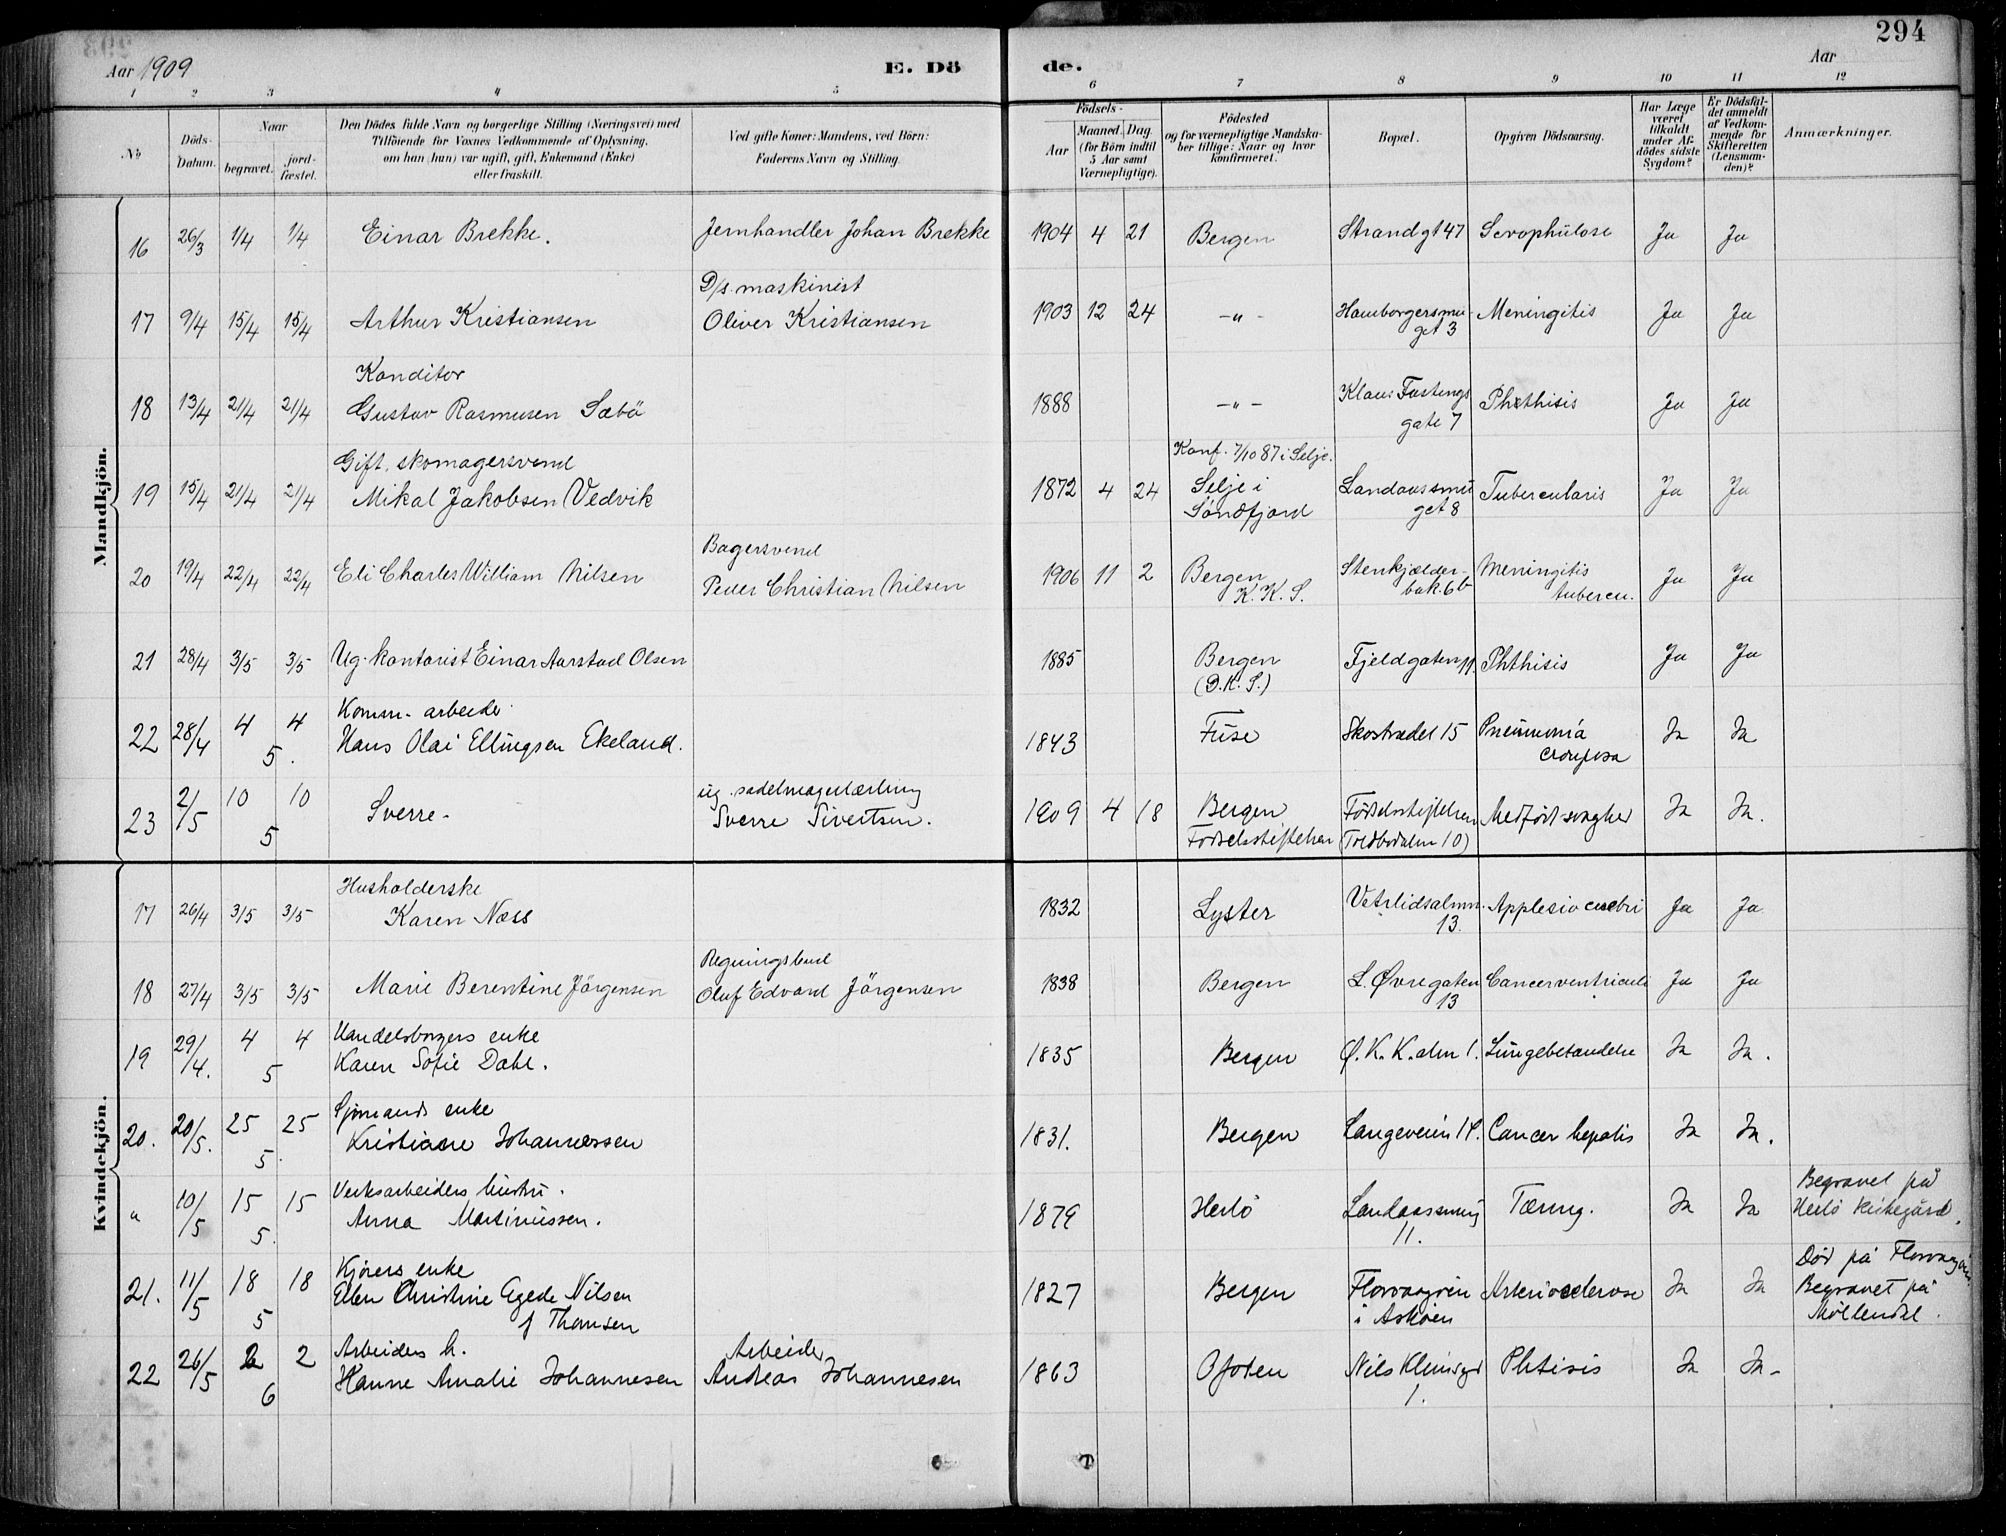 294
Aar 1909
E. Dö
de.
Aar
1 2 3 4 5 6 7 8 9 10 11 12
No
Döds-Datum.
Naar
begravet.
jord-fæstet.
Den Dödes fulde Navn og borgerlige Stilling (Næringsvei) med
Tilföiende for Voxnes Vedkommende af Oplysning,
om han (hun) var ugift, gift, Enkemand (Enke)
eller fraskilt.
Ved gifte Koner: Mandens, ved Börn:
Faderens Navn og Stilling.
Födsels-
Aar
Maaned. Dag.
(for Börn indtil
5 Aar samt
Værnepligtige).
Födested
og for værnepligtige Mandska-
ber tillige: Naar og hvor
konfirmeret.
Bopæl.
Opgiven Dödsaarsag.
Har Læge
været
tilkaldt
under Af-
dödes sidste
Sygdom?
Er Dödsfal-
det anmeldt
af Vedkom-
mende for
Skifteretten
(Lensman-
den)?
Anmærkninger.
Mandkjön.
16 26/3 1/4 1/4 Einar Brekke. Jernhandler Johan Brekke 1904 4 21 Bergen Strandgt 47 Scrophulose Ja Ja
D/s. maskinist
17 9/4 15/4 15/4 Arthur Kristiansen Oliver Kristiansen 1903 12 24 -„- Hamborgersmu- Meningitis Ja Ja
get 3
Konditor
18 13/4 21/4 21/4 Gustav Rasmusen Sæbö 1888 -„- Klaus Fastings Phthisis Ja Ja
gate 7
Gift. skomagersvend Konf. 7/10 87 i Selje.
19 15/4 21/4 21/4 Mikal Jakobsen Vedvik 1872 4 24 Selje i Landaassmu Tubercularis Ja Ja
Söndfjord get 8
Bagersvend
20 19/4 22/4 22/4 Eli Charles William Nilsen Peder Christian Nilsen 1906 11 2 Bergen Stenkjælder- Meningitis Ja Ja
K. K. S. bak. 6b tubercu.
21 28/4 3/5 3/5 Ug. kontorist Einar Aarstad Olsen 1885 Bergen Fjeldgaten 11. Phthisis Ja Ja
(D. K. S.)
Komm. arbeider
22 28/4 4 4 Hans Olai Ellingsen Ekeland. 1843 Fuse Skostrædet 15 Pneumonia Ja Ja
5. crouposa
ug. sadelmagerlærling
23 2/5 10 10 Sverre. Sverre Sivertsen. 1909 4 18 Bergen Födselsstiftelsen Medfödt svaghed Ja Ja.
5 Födselsstiftelsen (Toldbodalm 10)
Kvindekjön.
Husholderske
17 26/4 3/5 3/5 Karen Næss 1832 Lyster Vetrlidsalmn. Applexio cerebri Ja Ja
13.
Regningsbud
18 27/4 3/5 3/5 Marie Berentine Jörgensen Oluf Edvard Jörgensen 1838 Bergen L. Øvregaten Cancer ventriculi Ja Ja
13
Handelsborgers enke
19 29/4. 4 4 Karen Sofie Dahl. 1835 Bergen Ø. K. K. alm 1. Lungebetændelse Ja Ja.
5
Sjömands enke
20. 20/5. 25 25 Kristiane Johannessen 1831. Bergen Langeveien 14. Cancer hepatis Ja Ja.
5.
Verksarbeiders hustru. Begravet på
„ 10/5 15 15 Anna Martinussen. 1879 Herlö Landaassmug Tæring. Ja Ja Herlö kirkegård.
5. 11.
Kjörers enke Död på Florvaagöen
21. 11/5 18 18 Ellen Christine Egede Nilsen 1827 Bergen Florvaagöen Arteriosclerose Ja Ja Begravet på
5 f Thomsen i Asköen Möllendal.
Arbeiders h. Arbeider
22 26/5 2 2 Hanne Amalie Johannesen Andreas Johannesen 1863 Ofoten Nils Klimsgd Phtisis Ja Ja-
6 1.